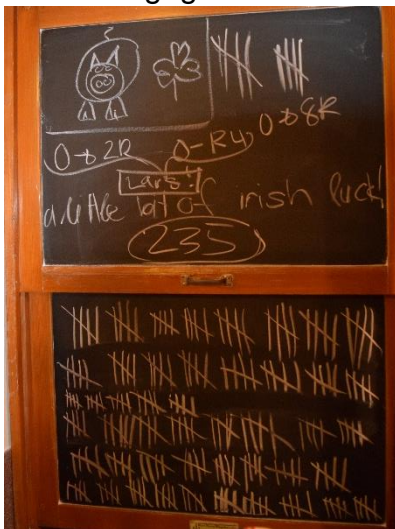 O→8R
O→2R O-R4
Lars!
a little bit of irish luck!
235